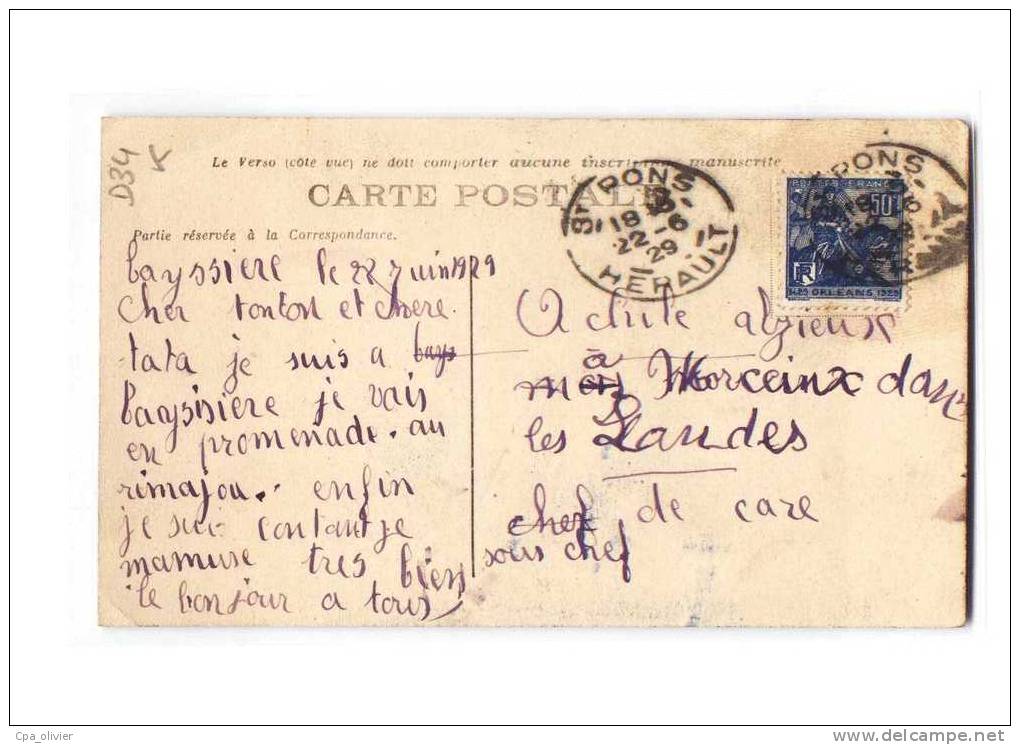 D34
Le Verso (côté vue) ne doit comporter aucune inscription manuscrite
CARTE POSTALE
Sᵗ PONS
18
22-6
29
HERAULT
PONS
18
POSTES FRANCE
50ᶜ
RF
1429 ORLEANS 1929
Partie réservée à la Correspondance.
bayssiere le 22 Juin 1929
Cher tonton et chere
tata je suis a bays
baysisiere je vais
en promenade. au
rimajou. enfin
je suis contant je
mamuse tres bien
le bonjour a tous
à
Morceinx dans
les Landes
chef de care
sous chef
Cpa_olivier
www.delcampe.net